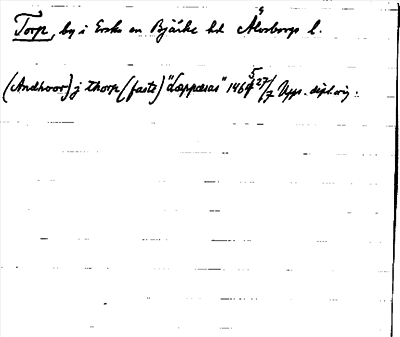 Torp, by i Erska sn Bjärke hd Älvsborgs l.
(Andhwor) j thorp (faste) "læppasas" 1465 27/7 Upps. dipl. orig.